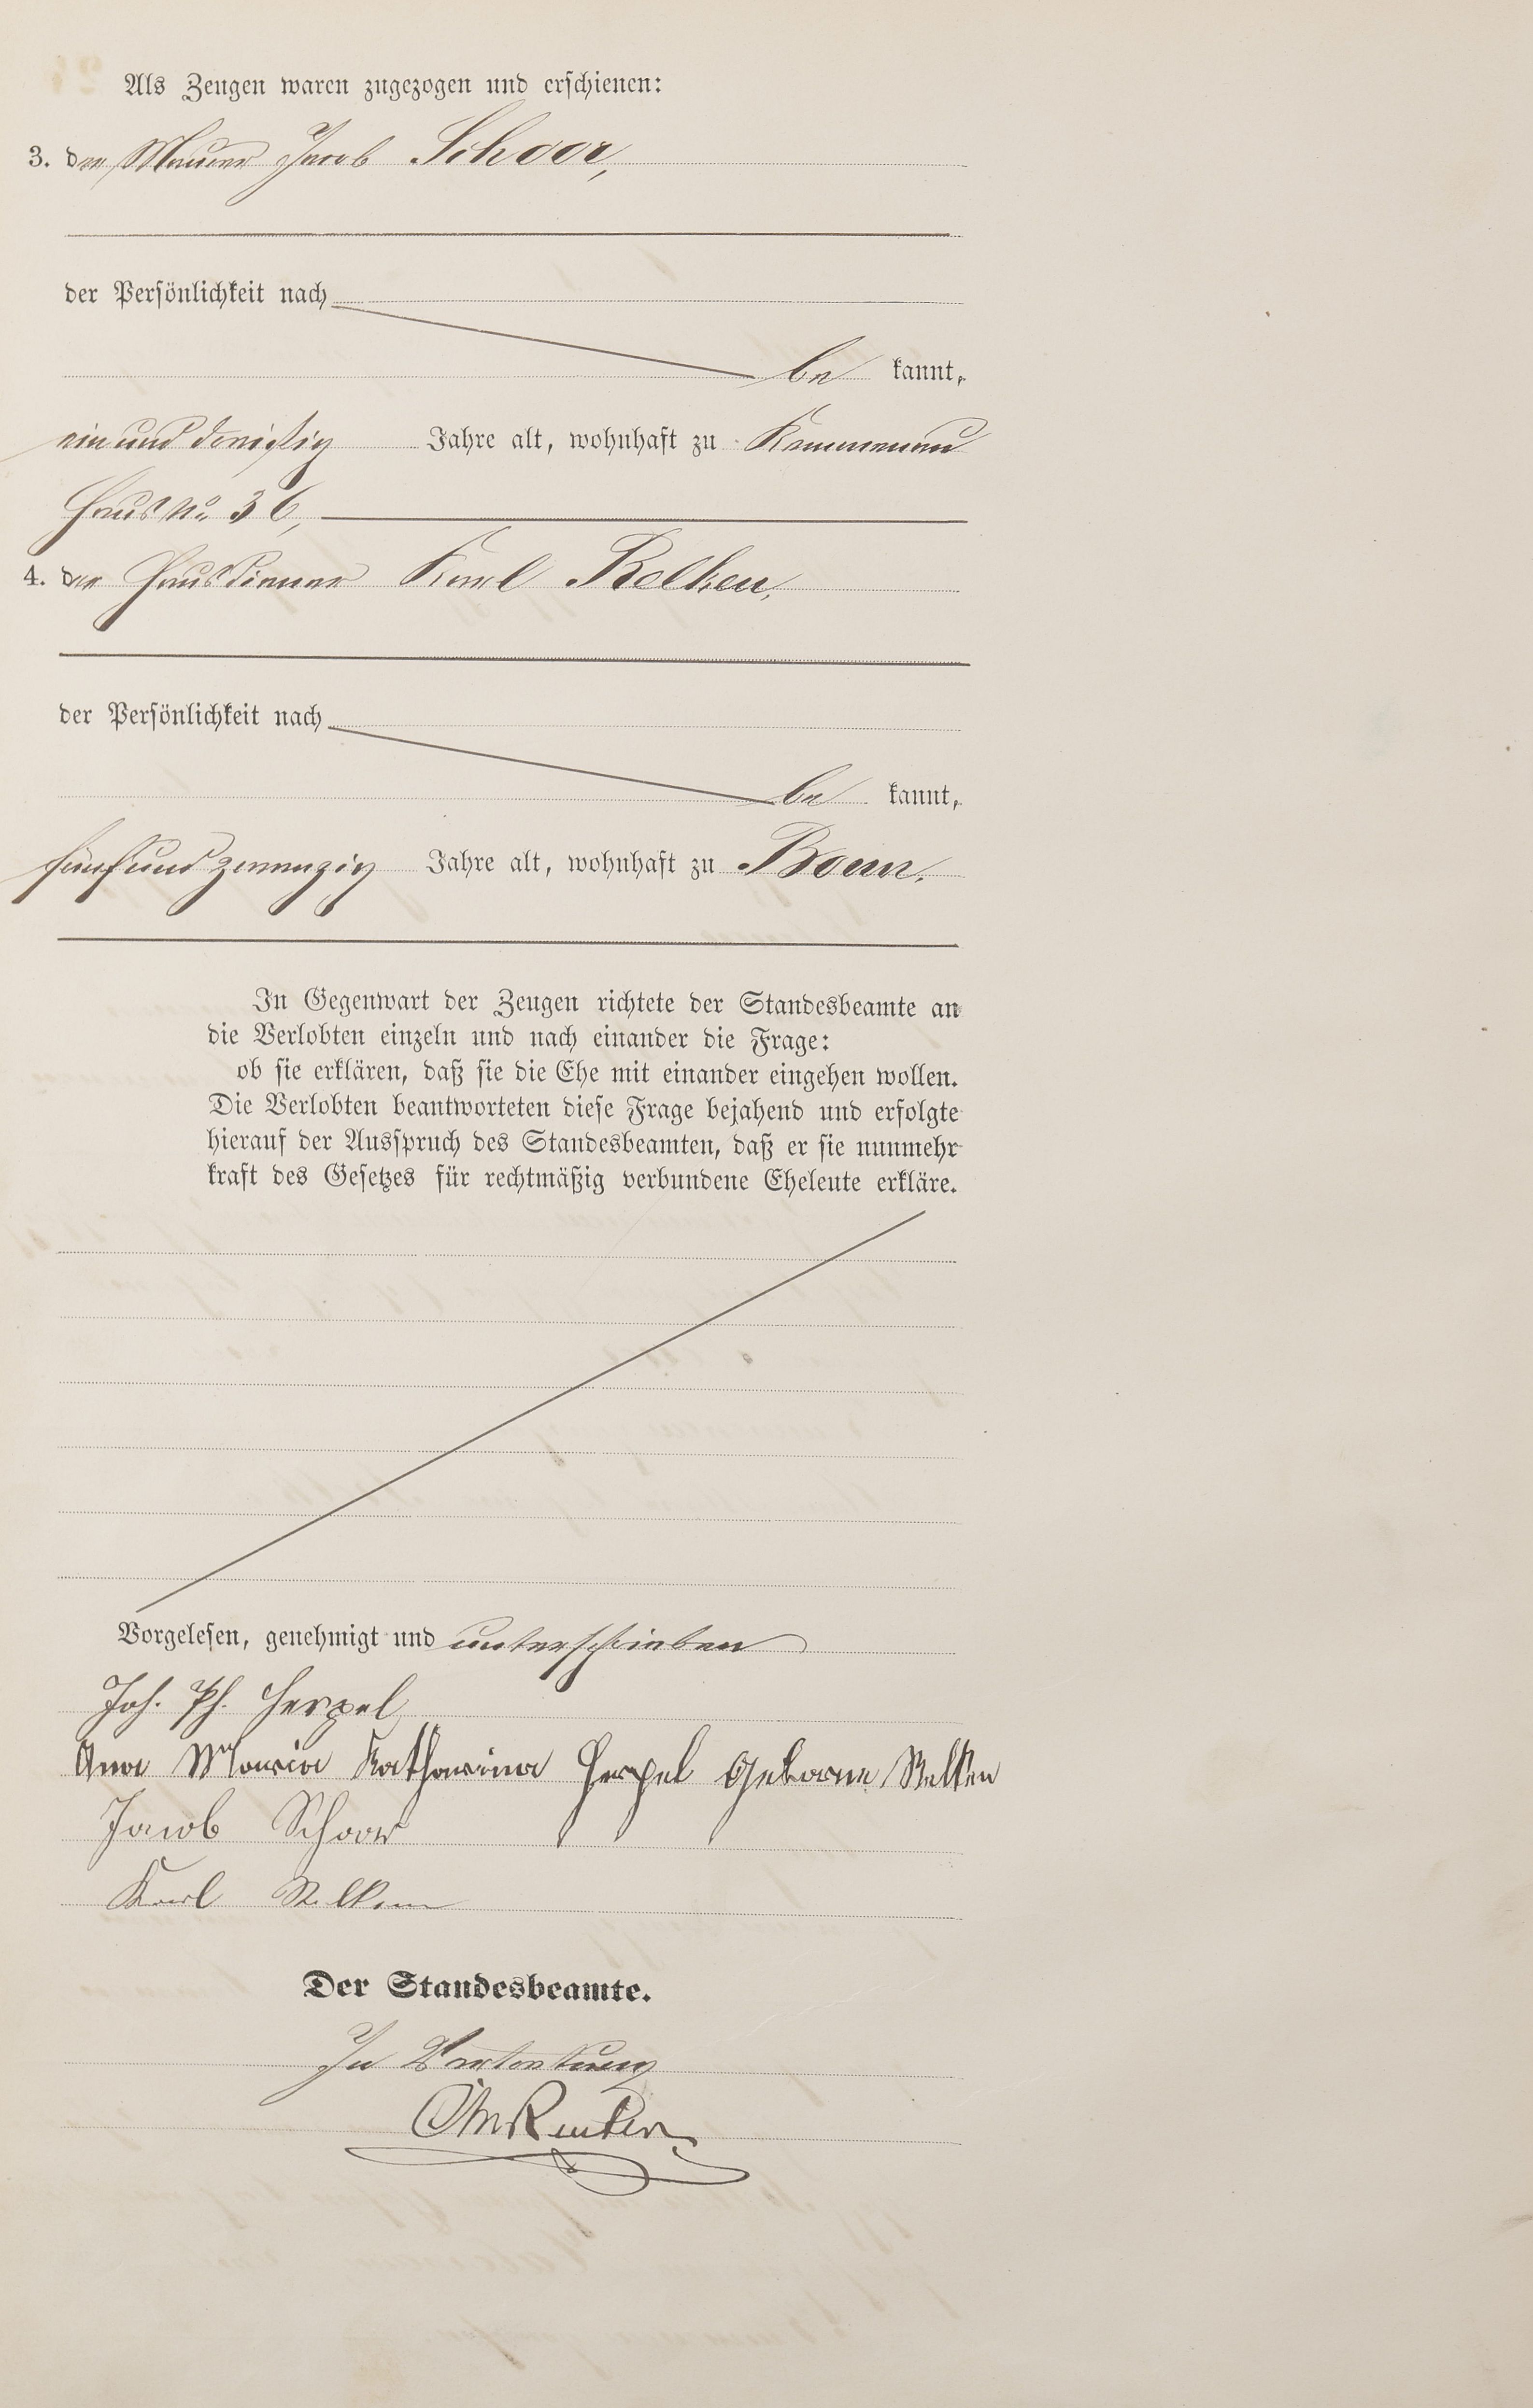 Als Zeugen waren zugezogen und erschienen:
3. der Maurer Jacob Schoor,
der Persönlichkeit nach
be kannt,
ein und dreißig Jahre alt, wohnhaft zu Kemmenau
Haus No. 36,
4. der Hausdiener Karl Relken,
der Persönlichkeit nach
be kannt,
fünf und zwanzig Jahre alt, wohnhaft zu Bonn.
In Gegenwart der Zeugen richtete der Standesbeamte an
die Verlobten einzeln und nach einander die Frage:
ob sie erklären, daß sie die Ehe mit einander eingehen wollen.
Die Verlobten beantworteten diese Frage bejahend und erfolgte
hierauf der Ausspruch des Standesbeamten, daß er sie nunmehr
kraft des Gesetzes für rechtmäßig verbundene Eheleute erkläre.
Vorgelesen, genehmigt und unterschrieben
Joh. Ph. Herpel
Ana Maria Katharina Herpel geborne Relken
Jacob Schoor
Karl Relken
Der Standesbeamte.
In Vertretung